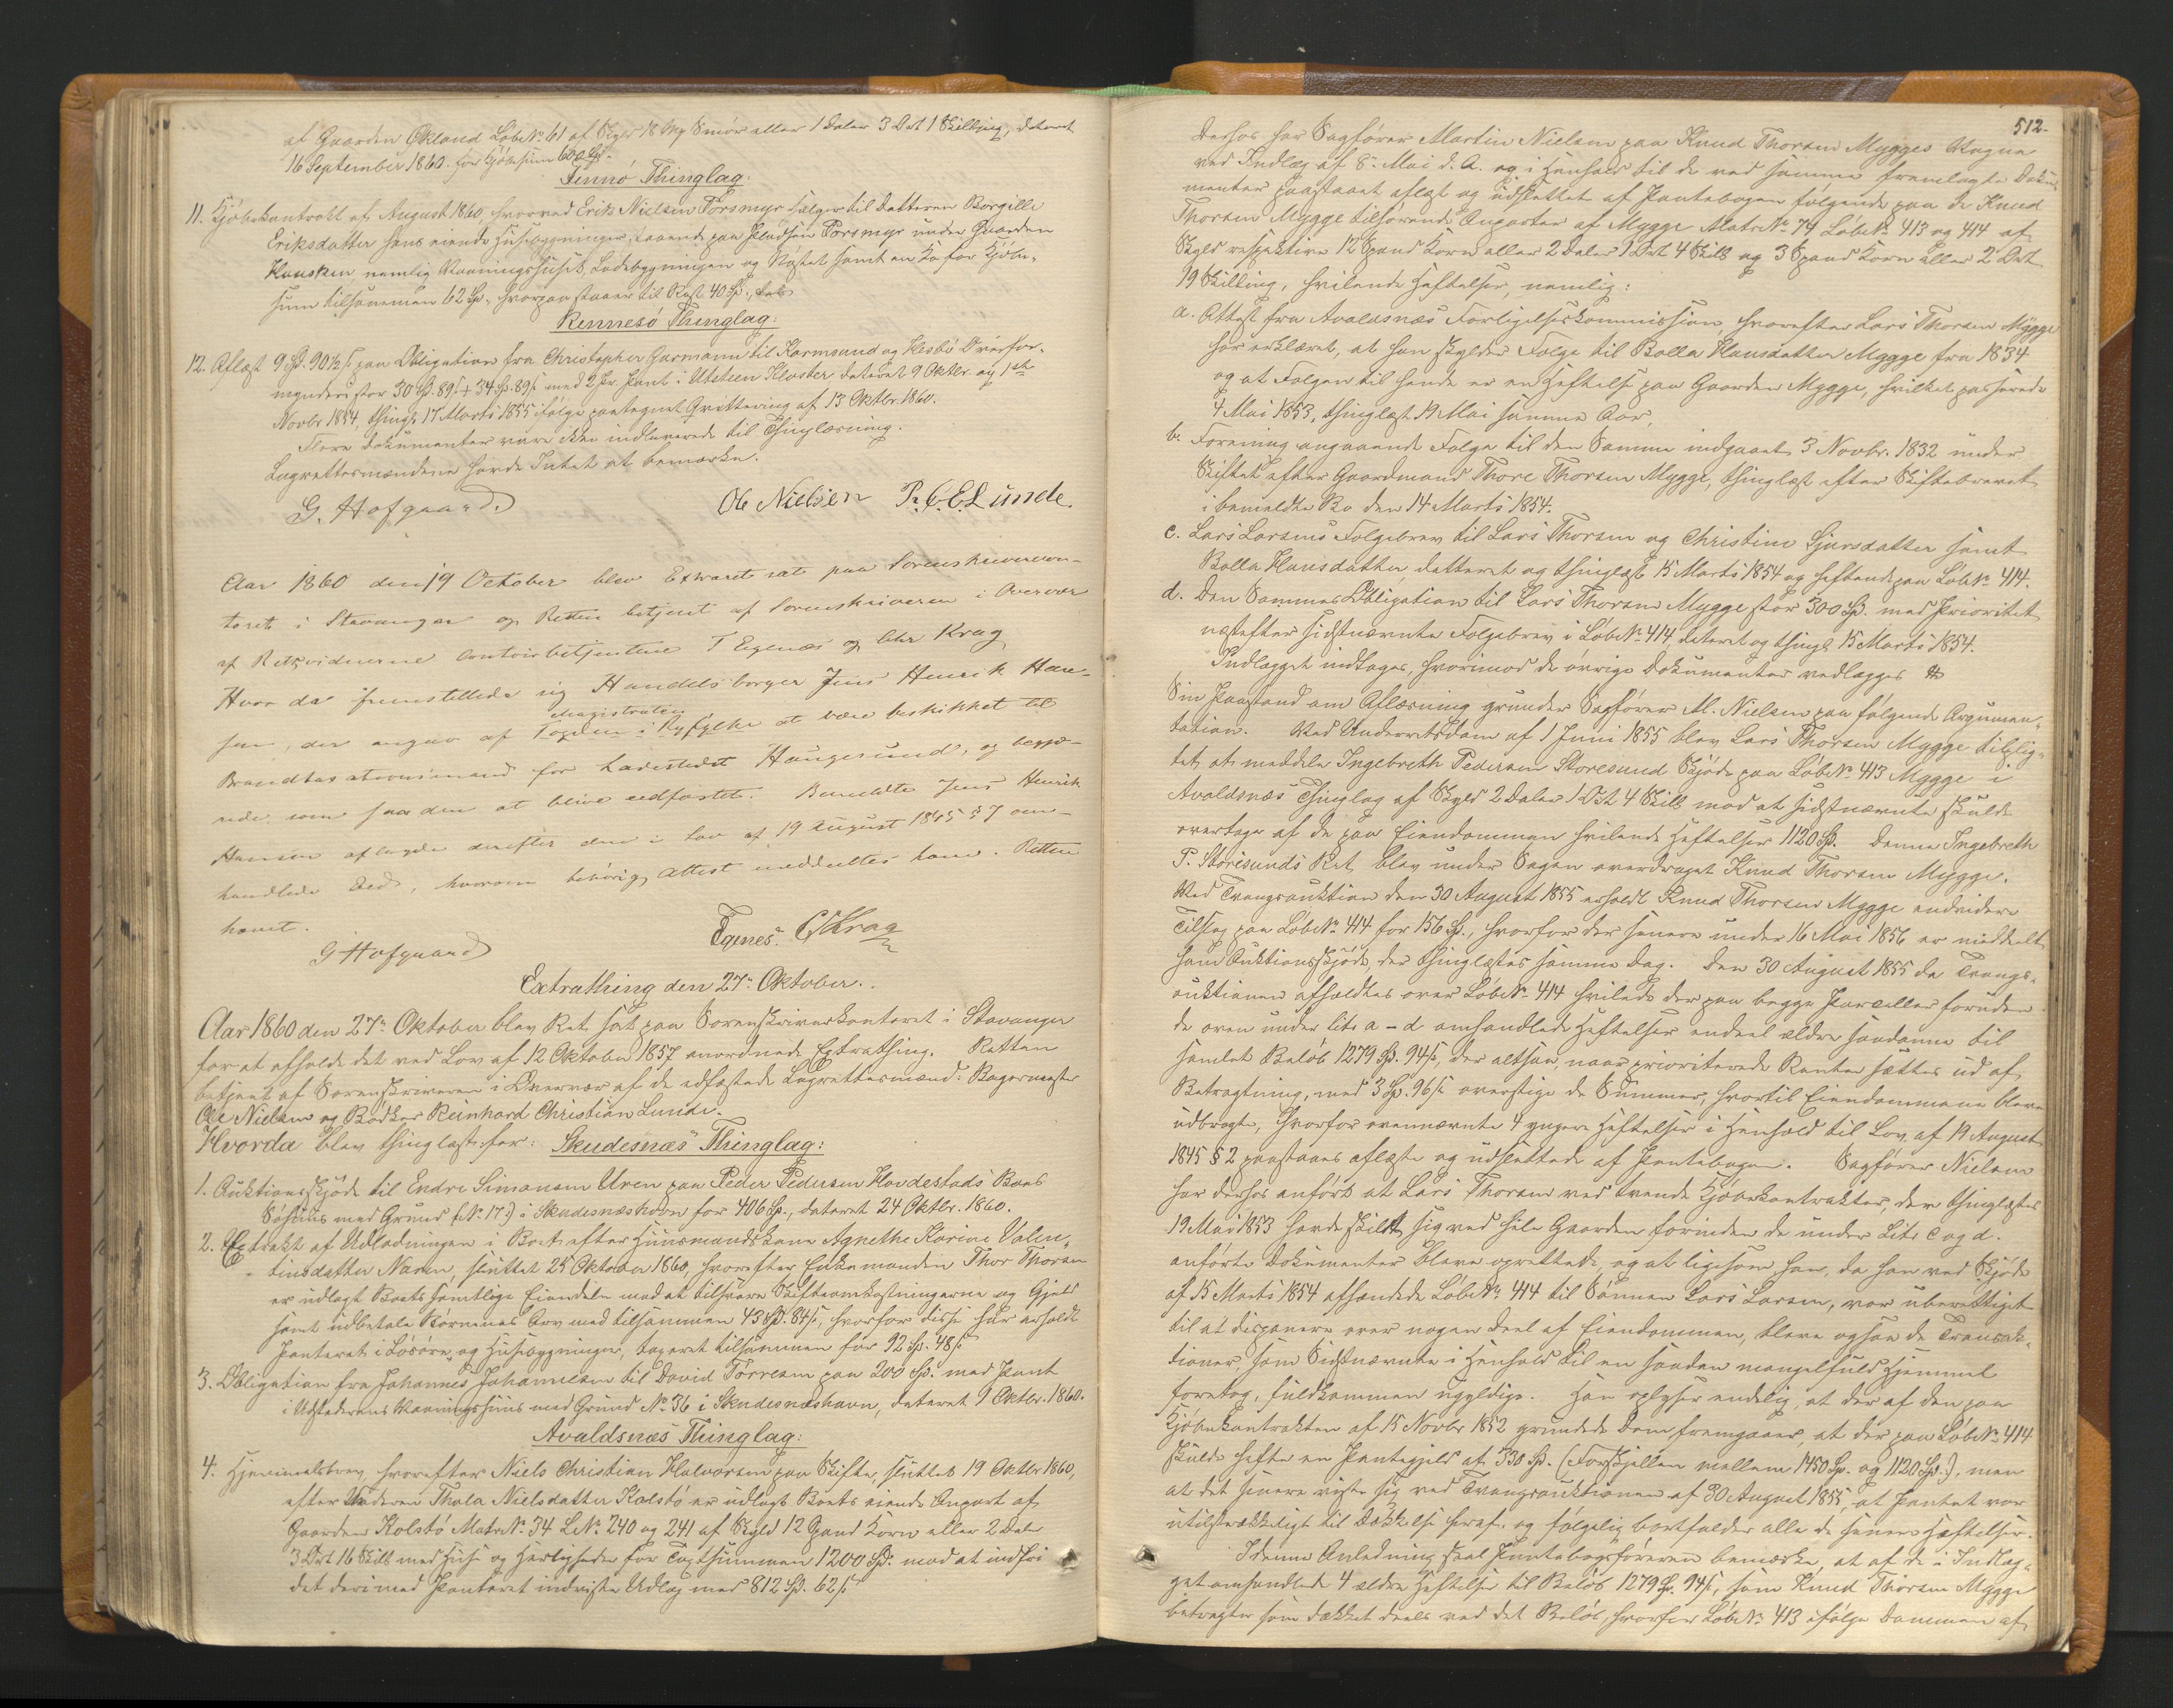 af Gaarden Økland Løbe No 61 af Skyld 18 Mkr Smør eller 1 Daler 3 Ort 1 Skilling, dateret
16 September 1860. for Kjøbesum 600 Spd.
Finnø Thinglag:
11. Kjøbekontrakt af August 1860, hvorved Erik Nielsen Torsmyr sælger til Datteren Borgille
Eriksdatter hans eiende Husebygninger, staaende paa Pladsen Torsmyr under Gaarden
Hausken nemlig Vaaningshuset, Ladebygningen og Nøstet samt en Ko for Kjøbe-
sum tilsammen 62 Spd., hvorpaa staaer til Rest 40 Spd.,
Rennesø Thinglag:
12. Aflæst 9 Spd. 90½ s paa Obligation fra Christopher Garmann til Karmsund og Hesbø Overfor-
mynderi stor 30 Spd. 89 s + 34 Spd. 89 s med 2 Pr. Pant i Utsteen Kloster dateret 9 Oktbr. og 1ste
Novbr 1854, thingl. 17 Marts 1855 ifølge paategnet Qvittering af 13 Oktbr. 1860.
Flere Dokumenter vare ikke indleverede til Thinglæsning.
Laugrettesmændene havde Intet at bemærke.
G. Hofgaard. Ole Nielsen R. C. E. Lunde.
Aar 1860 den 19 October blev Extraret sat paa Sorenskrivercon-
toret i Stavanger og Retten betjent af Sorenskriveren i Overvær
af Retsvidnerne Contoirbetjentene T Egenes og Chr Krag
Hvor da fremstillede sig Handelsborger Jens Henrik Han-
Magistraten
sen, der angav af Fogden i Ryfylke at være beskikket til
Brandtaxationsmand for Ladestedet Haugesund, og begjæ-
rede som saadan at blive edfæstet. Bemeldte Jens Henrik
Hansen aflagde derefter den i Lov af 19 August 1845 § 7 om-
handlede Eed, hvorom behørig Attest meddeeltes ham. Retten
hævet.
G Hofgaard Egenes. C Krag
Extrathing den 27de Oktober.
Aar 1860 den 27de Oktober blev Ret sat paa Sorenskriverkontoret i Stavanger
for at afholde det ved Lov af 12 Oktober 1857 anordnede Extrathing. Retten
betjent af Sorenskriveren i Overvær af de edfæstede Laugrettesmænd: Bagermester
Ole Nielsen og Bødker Reinhard Christian Lunde.
Hvorda blev thinglæst for: Skudesnæs Thinglag:
1. Auktionsskjøde til Endre Simonsen Uren paa Peder Pedersen Hovdestads Boes
Søhuus med Grund (No 17) i Skudesnæshavn for 406 Spd., dateret 24 Oktbr. 1860.
2. Extrakt af Udlodningen i Boet efter Huusmandskone Agnethe Karine Valen-
tinsdatter Naren, sluttet 25 Oktober 1860, hvorefter Enkemanden Thor Thorsen
er udlagt Boets samtlige Eiendele mod at tilsvare Skifteomkostningerne og Gjeld
samt udbetale Børnenes Arv med tilsammen 43 Spd. 84 s, hvorfor disse har erholdt
Panteret i Løsøre og Husebygninger, taxeret tilsammen for 92 Spd. 48 s
3. Obligation fra Johannes Johannesen til David Torresen paa 200 Spd. med Pant
i Udstederens Vaaningshuus med Grund No 36 i Skudesnæshavn, dateret 1 Oktbr. 1860.
Avaldsnæs Thinglag:
4. Hjemmelsbrev, hvorefter Niels Christian Halvorsen paa Skifte, sluttet 19 Oktbr 1860,
efter Moderen Thala Nielsdatter Kolstø er udlagt Boets eiende Anpart af
Gaarden Kolstø Matr No 34 L No 240 og 241 af Skyld 12 Spand Korn eller 2 Daler
3 Ort 16 Skill med Huse og Herligheder for Taxtsummen 1200 Spd: mod at indfri
det deri med Panteret indvisste Udlæg med 812 Spd. 62 s
512.
Derhos har Sagfører Martin Nielsen paa Knud Thorsen Mygges Vegne
ved Indlæg af 8de Mai d. A. og i Henhold til de ved samme fremlagte Doku-
menter paastaaet aflæst og udslettet af Pantebogen følgende paa de Knud
Thorsen Mygge tilhørende Anparter af Mygge Matr No 74 Løbe No 413 og 414 af
Skyld respektive 12 Spand Korn eller 2 Daler 1 Ort 4 Skill og 3 Spand Korn eller 2 Ort
19 Skilling, hvilende Heftelser, nemlig:
a. Attest fra Avaldsnæs Forligelseskommission, hvorefter Lars Thorsen Mygge
har erklæret, at han skylder Folge til Bolla Hansdatter Mygge fra 1834
og at Folgen til hende er en Heftelse paa Gaarden Mygge, hvilket passerede
4 Mai 1853, thinglæst 19 Mai samme Aar,
b. Forening angaaende Folge til den Samme indgaaet 3 Novbr. 1832 under
Skiftet efter Gaardmand Thore Thorsen Mygge, thinglæst efter Skiftebrevet
i bemeldte Bo den 14 Marts 1854.
c. Lars Larsens Folgebrev til Lars Thorsen og Christine Sjursdatter samt
Bolla Hansdatter datteret og thinglæst 15 Marts 1854 og heftende paa Løbe No 414.
d. Den Sammes Obligation til Lars Thorsen Mygge stor 300 Spd. med Prioritet
næstefter sidstnævnte Folgebrev i Løbe No 414, dateret og thingl. 15 Marts 1854.
Indlægget indtages, hvorimod de øvrige Dokumenter vedlægges
Sin Paastand om Aflæsning grunder Sagfører M. Nielsen paa følgende Argumen-
tation. Ved Underretsdom af 1 Juni 1855 blev Lars Thorsen Mygge tilplig-
tet at meddele Ingebreth Pedersen Storesund Skjøde paa Løbe No 413 Mygge i
Avaldsnæs Thinglag af Skyld 2 Daler 1 Ort 4 Skill mod at sidstnævnte skulde
overtage af de paa Eiendommen hvilende Heftelser 1120 Spd. Denne Ingebreth
P. Storesunds Ret blev under Sagen overdraget Knud Thorsen Mygge.
Ved Tvangsauktion den 30 August 1855 erholdt Knud Thorsen Mygge endvidere
Tilslag paa Løbe No 414 for 156 Spd., hvorfor der senere under 16 Mai 1856 er meddeelt
ham Auktionsskjøde, der thinglæstes samme Dag. Den 30 August 1855 da Tvangs-
auktionen afholdtes over Løbe No 414 hvilede der paa begge Parceller foruden
de oven under litr a - d omhandlede Heftelser endeel ældre saadanne til
samlet Beløb 1279 Spd. 94 s, der altsaa, naar prioriterede Renter sættes ud af
Betragtning, med 3 Spd. 96 s overstige de Summer, hvortil Eiendommene bleve
udbragte, hvorfor ovennævnte 4 yngere Heftelser i Henhold til Lov af 19 August
1845 § 2 paastaaes aflæste og udslettede af Pantebogen. Sagfører Nielsen
har derhos anført at Lars Thorsen ved tvende Kjøbekontrakter, der thinglæstes
19 Mai 1853 havde skildt sig ved hele Gaarden forinden de under Litr c og d.
anførte Dokumenter bleve oprettede, og at ligesom han, da han ved Skjøde
af 15 Marts 1854 afhændede Løbe No 414 til Sønnen Lars Larsen, var uberettiget
til at disponere over nogen Deel af Eiendommen, bleve ogsaa de Transak-
tioner, som Sidstnævnte i Henhold til en saadan mangelfuld Hjemmel
foretog, fuldkommen ugyldige. Han oplyser endelig, at der af den paa
Kjøbekontrakten af 15 Novbr 1852 grundede Dom fremgaaer, at der paa Løbe No 414
skulde hefte en Pantegjeld af 330 Spd. (Forskjellen mellem 1450 Spd. og 1120 Spd.), men
at det senere viste sig ved Tvangsauktionen af 30 August 1855, at Pantet var
utilstrækkeligt til Dækkelse heraf, og følgelig bortfalder alle de senere Heftelser.
I denne Anledning skal Pantebogsføreren bemærke, at af de i Indlæg-
get omhandlede 4 ældre Heftelser til Beløb 1279 Spd. 94 s, som Knud Thorsen Mygge
betragter som dækket deels ved det Beløb, hvorfor Løbe No 413 ifølge Dommen af